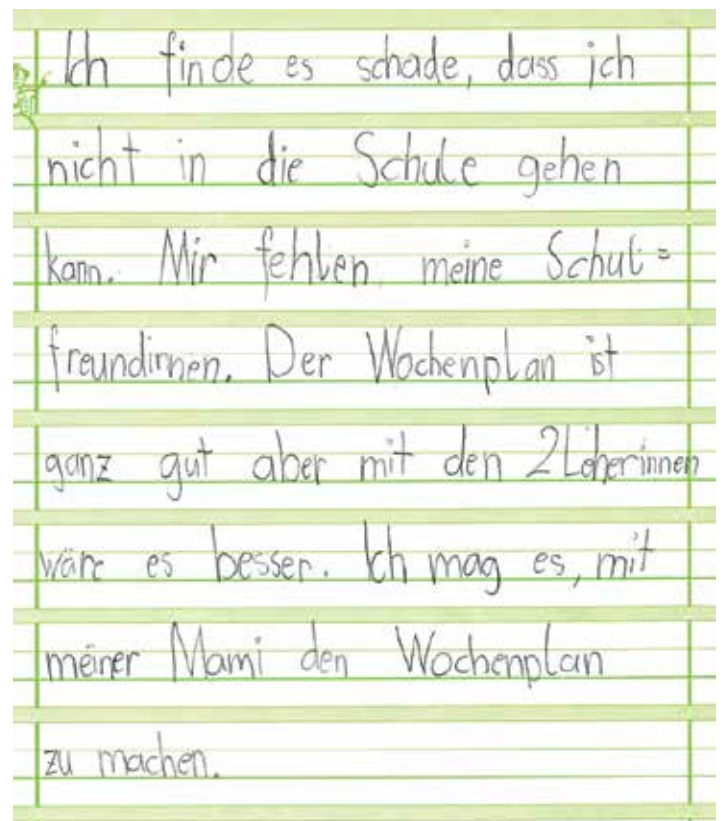 Ich finde es schade, dass ich
nicht in die Schule gehen
kann. Mir fehlen meine Schul=
freundinnen. Der Wochenplan ist
ganz gut aber mit den 2 Leherinnen
wäre es besser. Ich mag es, mit
meiner Mami den Wochenplan
zu machen.